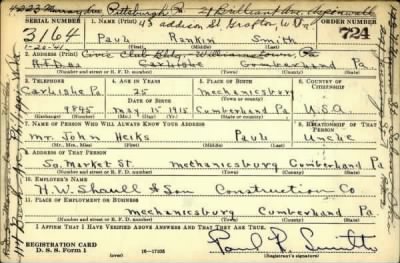 4223 Murray Ave Pittsburgh Pa 21 Brilliant Ave Aspinwall
SERIAL NUMBER 1. NAME (Print) 43 addison St. Grafton, W. Va. ORDER NUMBER
3164 Paul Rankin Smith 724
1-20-41 (First) (Middle) (Last)
2. ADDRESS (Print) Civic Club Bldg. Williamstown, Pa
R.F.D. Carlisle Cumberland Pa.
(Number and street or R. F. D. number) (Town) (County) (State)
3. TELEPHONE 4. AGE IN YEARS 5. PLACE OF BIRTH 6. COUNTRY OF CITIZENSHIP
Carlisle Pa 25 Mechanicsburg
DATE OF BIRTH (Town or county)
984S May 15 1915 Cumberland Pa U.S.A
(Exchange) (Number) (Mo.) (Day) (Yr.) (State or country)
7. NAME OF PERSON WHO WILL ALWAYS KNOW YOUR ADDRESS 8. RELATIONSHIP OF THAT PERSON
Mr. John Paul Uncle
(Mr., Mrs., Miss) (First) (Middle) (Last)
9. ADDRESS OF THAT PERSON
So. Market St. Mechanicsburg Cumberland Pa
(Number and street or R. F. D. number) (Town) (County) (State)
10. EMPLOYER'S NAME
H.W. & Son Construction Co
11. PLACE OF EMPLOYMENT OR BUSINESS
Mechanicsburg Cumberland Pa.
(Number and street or R. F. D. number) (Town) (County) (State)
I AFFIRM THAT I HAVE VERIFIED ABOVE ANSWERS AND THAT THEY ARE TRUE.
REGISTRATION CARD
D. S. S. Form 1 16-17105 Paul R. Smith
(Registrant's signature)